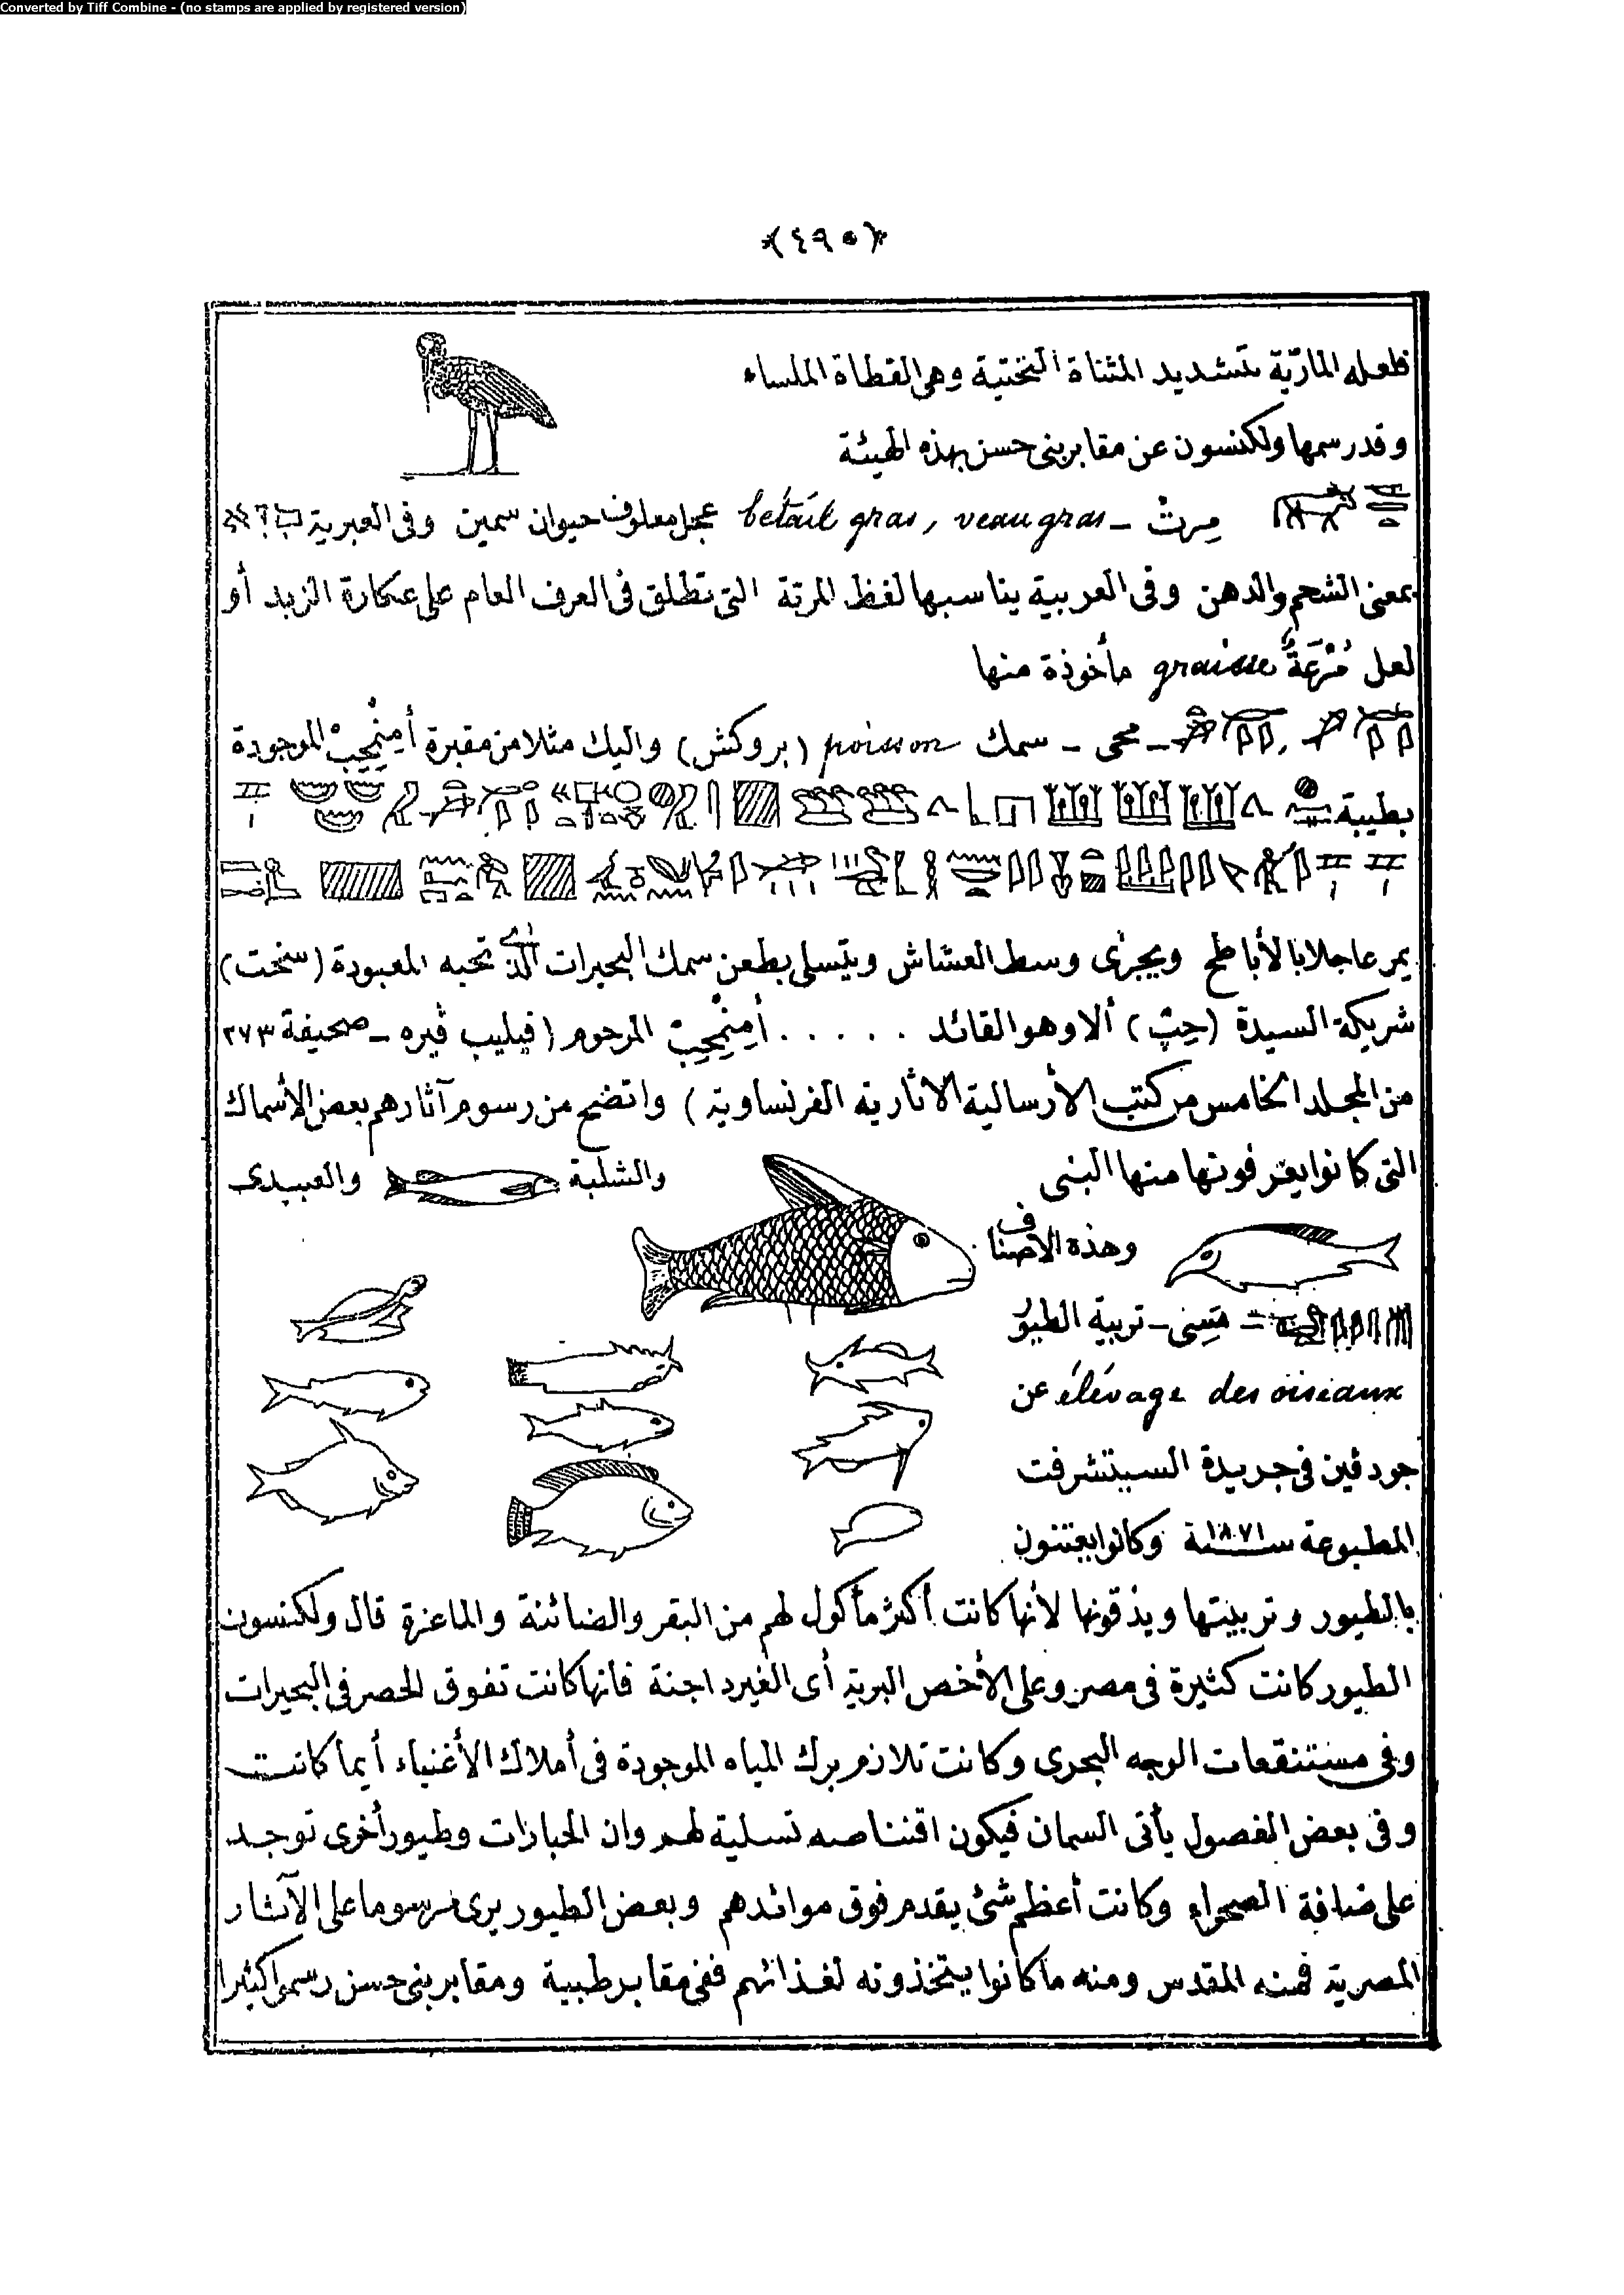 Converted by Tiff Combine - (no stamps are applied by registered version)
﴿٤٩٥﴾
فلعله المارّية بتشديد المثناة التحتية وهى القطاة الملساء
وقد رسمها ولكنسون عن مقابر بنى حسن بهذه الهيئة
مرث - bétail gras, veau gras عجل معلوف حيوان سمين وفى العبرية
بمعنى الشحم والدهن وفى العربية يناسبها لفظ المرتة التى تطلق فى العرف العام على عكارة الزبد أو
لعل graisse مأخوذة منها
- محى - سمك poisson (بروكش) واليك مثلا من مقبرة أمنمحب الموجودة
بطيبة
يمر عاجلا بالأباطح ويجرى وسط العشاش ويتسلى بطعن سمك البحيرات الذى تحبه المعبودة (سخت)
شريكة السيدة (حب) ألا وهو القائد ..... أمنمحب المرحوم (فيليب فيره - صحيفة ٢٧٣
من المجلد الخامس من كتب الأرسالية الاثارية الفرنساوية) واتضح من رسوم آثارهم بعض الأسماك
التى كانوا يعرفونها منها البنى
والشلبة
والعبيدى
وهذه الاصناف
= مسى - تربية الطيور
élévage des oiseaux عن
جودفين فى جريدة السيتشرفت
المطبوعة سنة ١٨٧١ وكانوا يعتنون
بالطيور وتربيتها ويذقونها لأنها كانت أكثر مأكول لهم من البقر والضائنة والماعزة قال ولكنسون
الطيور كانت كثيرة فى مصر وعلى الأخص البرية أى الغير داجنة فانها كانت تفوق الحصر فى البحيرات
وفى مستنقعات الوجه البحرى وكانت تلازم برك المياه الموجودة فى أملاك الأغنياء أيما كانت
وفى بعض الفصول يأتى السمان فيكون اقتناصه تسلية لهم وان الحبارات وطيور أخرى توجد
على ضافة الصحراء وكانت أعظم شئ يقدم فوق موائدهم وبعض الطيور يرى مرسوما على الآثار
المصرية فمنه المقدس ومنه ما كانوا يتخذونه لغذائهم ففى مقابر طيبة ومقابر بنى حسن رسموا كثيرا